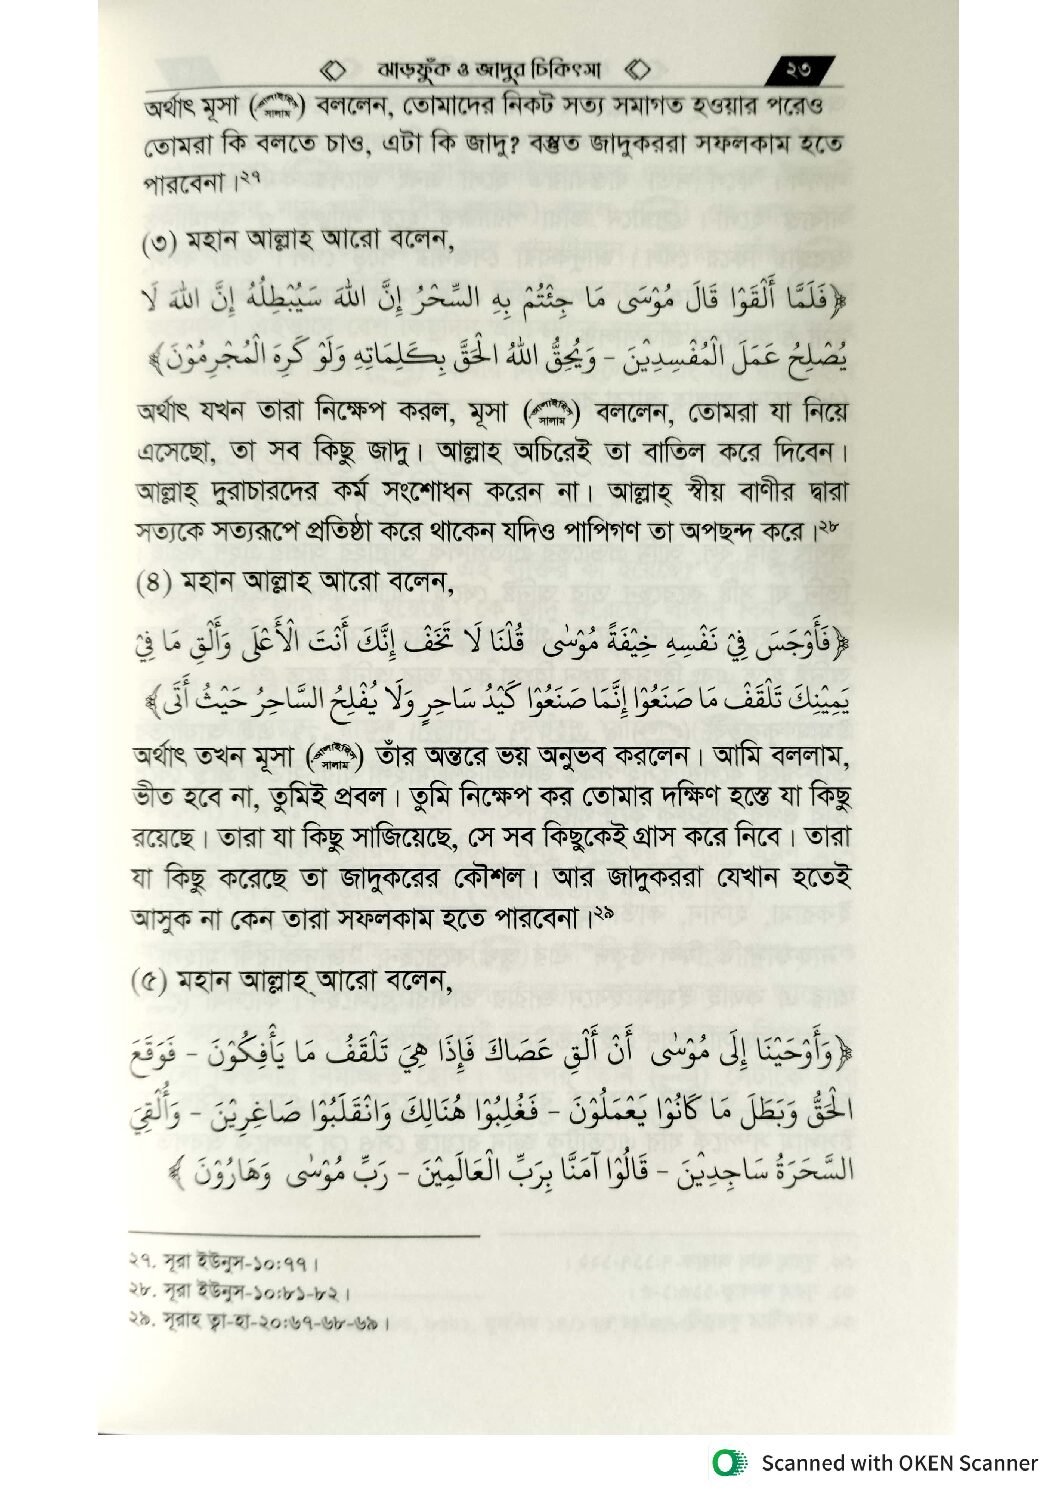 ঝাড়ফুঁক ও জাদুর চিকিৎসা ২৩
অর্থাৎ মূসা (আলাইহিস সালাম) বললেন, তোমাদের নিকট সত্য সমাগত হওয়ার পরেও
তোমরা কি বলতে চাও, এটা কি জাদু? বস্তুত জাদুকররা সফলকাম হতে
পারবেনা।২৭
(৩) মহান আল্লাহ আরো বলেন,
﴿فَلَمَّا أَلْقَوْا قَالَ مُوْسَى مَا جِئْتُمْ بِهِ السِّحْرُ إِنَّ اللهَ سَيُبْطِلُهُ إِنَّ اللهَ لَا
يُصْلِحُ عَمَلَ الْمُفْسِدِيْنَ - وَيُحِقُّ اللهُ الْحَقَّ بِكَلِمَاتِهِ وَلَوْ كَرِهَ الْمُجْرِمُوْنَ﴾
অর্থাৎ যখন তারা নিক্ষেপ করল, মূসা (আলাইহিস সালাম) বললেন, তোমরা যা নিয়ে
এসেছো, তা সব কিছু জাদু। আল্লাহ অচিরেই তা বাতিল করে দিবেন।
আল্লাহ্ দুরাচারদের কর্ম সংশোধন করেন না। আল্লাহ্ স্বীয় বাণীর দ্বারা
সত্যকে সত্যরূপে প্রতিষ্ঠা করে থাকেন যদিও পাপিগণ তা অপছন্দ করে।২৮
(৪) মহান আল্লাহ আরো বলেন,
﴿فَأَوْجَسَ فِيْ نَفْسِهِ خِيْفَةً مُوْسٰى قُلْنَا لَا تَخَفْ إِنَّكَ أَنْتَ الْأَعْلَى وَأَلْقِ مَا فِيْ
يَمِيْنِكَ تَلْقَفْ مَا صَنَعُوْا إِنَّمَا صَنَعُوْا كَيْدُ سَاحِرٍ وَلَا يُفْلِحُ السَّاحِرُ حَيْثُ أَتَى﴾
অর্থাৎ তখন মূসা (আলাইহিস সালাম) তাঁর অন্তরে ভয় অনুভব করলেন। আমি বললাম,
ভীত হবে না, তুমিই প্রবল। তুমি নিক্ষেপ কর তোমার দক্ষিণ হস্তে যা কিছু
রয়েছে। তারা যা কিছু সাজিয়েছে, সে সব কিছুকেই গ্রাস করে নিবে। তারা
যা কিছু করেছে তা জাদুকরের কৌশল। আর জাদুকররা যেখান হতেই
আসুক না কেন তারা সফলকাম হতে পারবেনা।২৯
(৫) মহান আল্লাহ্ আরো বলেন,
﴿وَأَوْحَيْنَا إِلَى مُوْسٰى أَنْ أَلْقِ عَصَاكَ فَإِذَا هِيَ تَلْقَفُ مَا يَأْفِكُوْنَ - فَوَقَعَ
الْحَقُّ وَبَطَلَ مَا كَانُوْا يَعْمَلُوْنَ - فَغُلِبُوْا هُنَالِكَ وَانْقَلَبُوْا صَاغِرِيْنَ - وَأُلْقِيَ
السَّحَرَةُ سَاجِدِيْنَ - قَالُوْا آمَنَّا بِرَبِّ الْعَالَمِيْنَ - رَبِّ مُوْسٰى وَهَارُوْنَ ﴾
২৭. সূরা ইউনুস-১০:৭৭।
২৮. সূরা ইউনুস-১০:৮১-৮২।
২৯. সূরাহ ত্বা-হা-২০:৬৭-৬৮-৬৯।
Scanned with OKEN Scanner